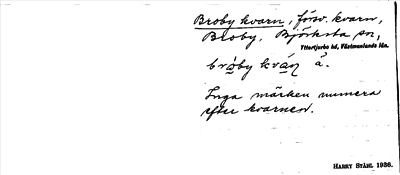 Broby kvarn, försv. kvarn,
Broby, Björksta sn,
Yttertjurbo hd, Västmanlands län.
bròby kván å.
Inga märken numera
efter kvarnen.
HARRY STÅHL 1936.